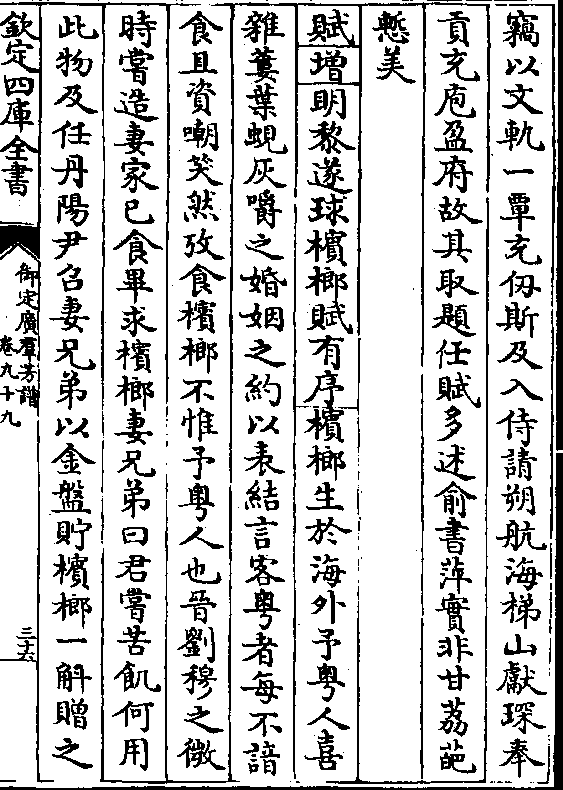 竊以文軌一覃充仞斯及入侍請朔航海梯山獻琛奉
貢充庖盈府故其取題任賦多述俞書萍實非甘荔葩
慙美
賦增明黎遂球檳榔賦有序檳榔生於海外予粤人喜
雜蔞葉蜆灰嚼之婚姻之約以表結言客粤者每不諳
食且資嘲笑然攷食檳榔不惟予粤人也晉劉穆之微
時嘗造妻家已食畢求檳榔妻兄弟曰君嘗苦飢何用
此物及任丹陽尹召妻兄弟以金盤貯檳榔一斛贈之
欽定四庫全書
御定廣羣芳譜
卷九十九
三十六